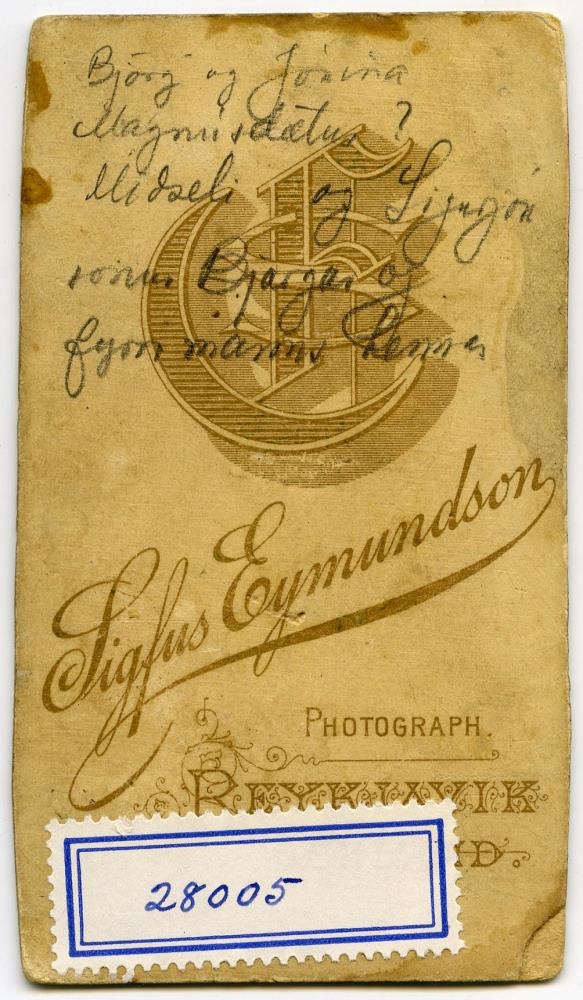 Björg og Jónína
Magnúsdætur?
Miðseli og Sigurjón
sonur Bjargar og
fyrri manns hennar
Sigfus Eymundson
PHOTOGRAPH.
REYKJAVIK
ND.
28005